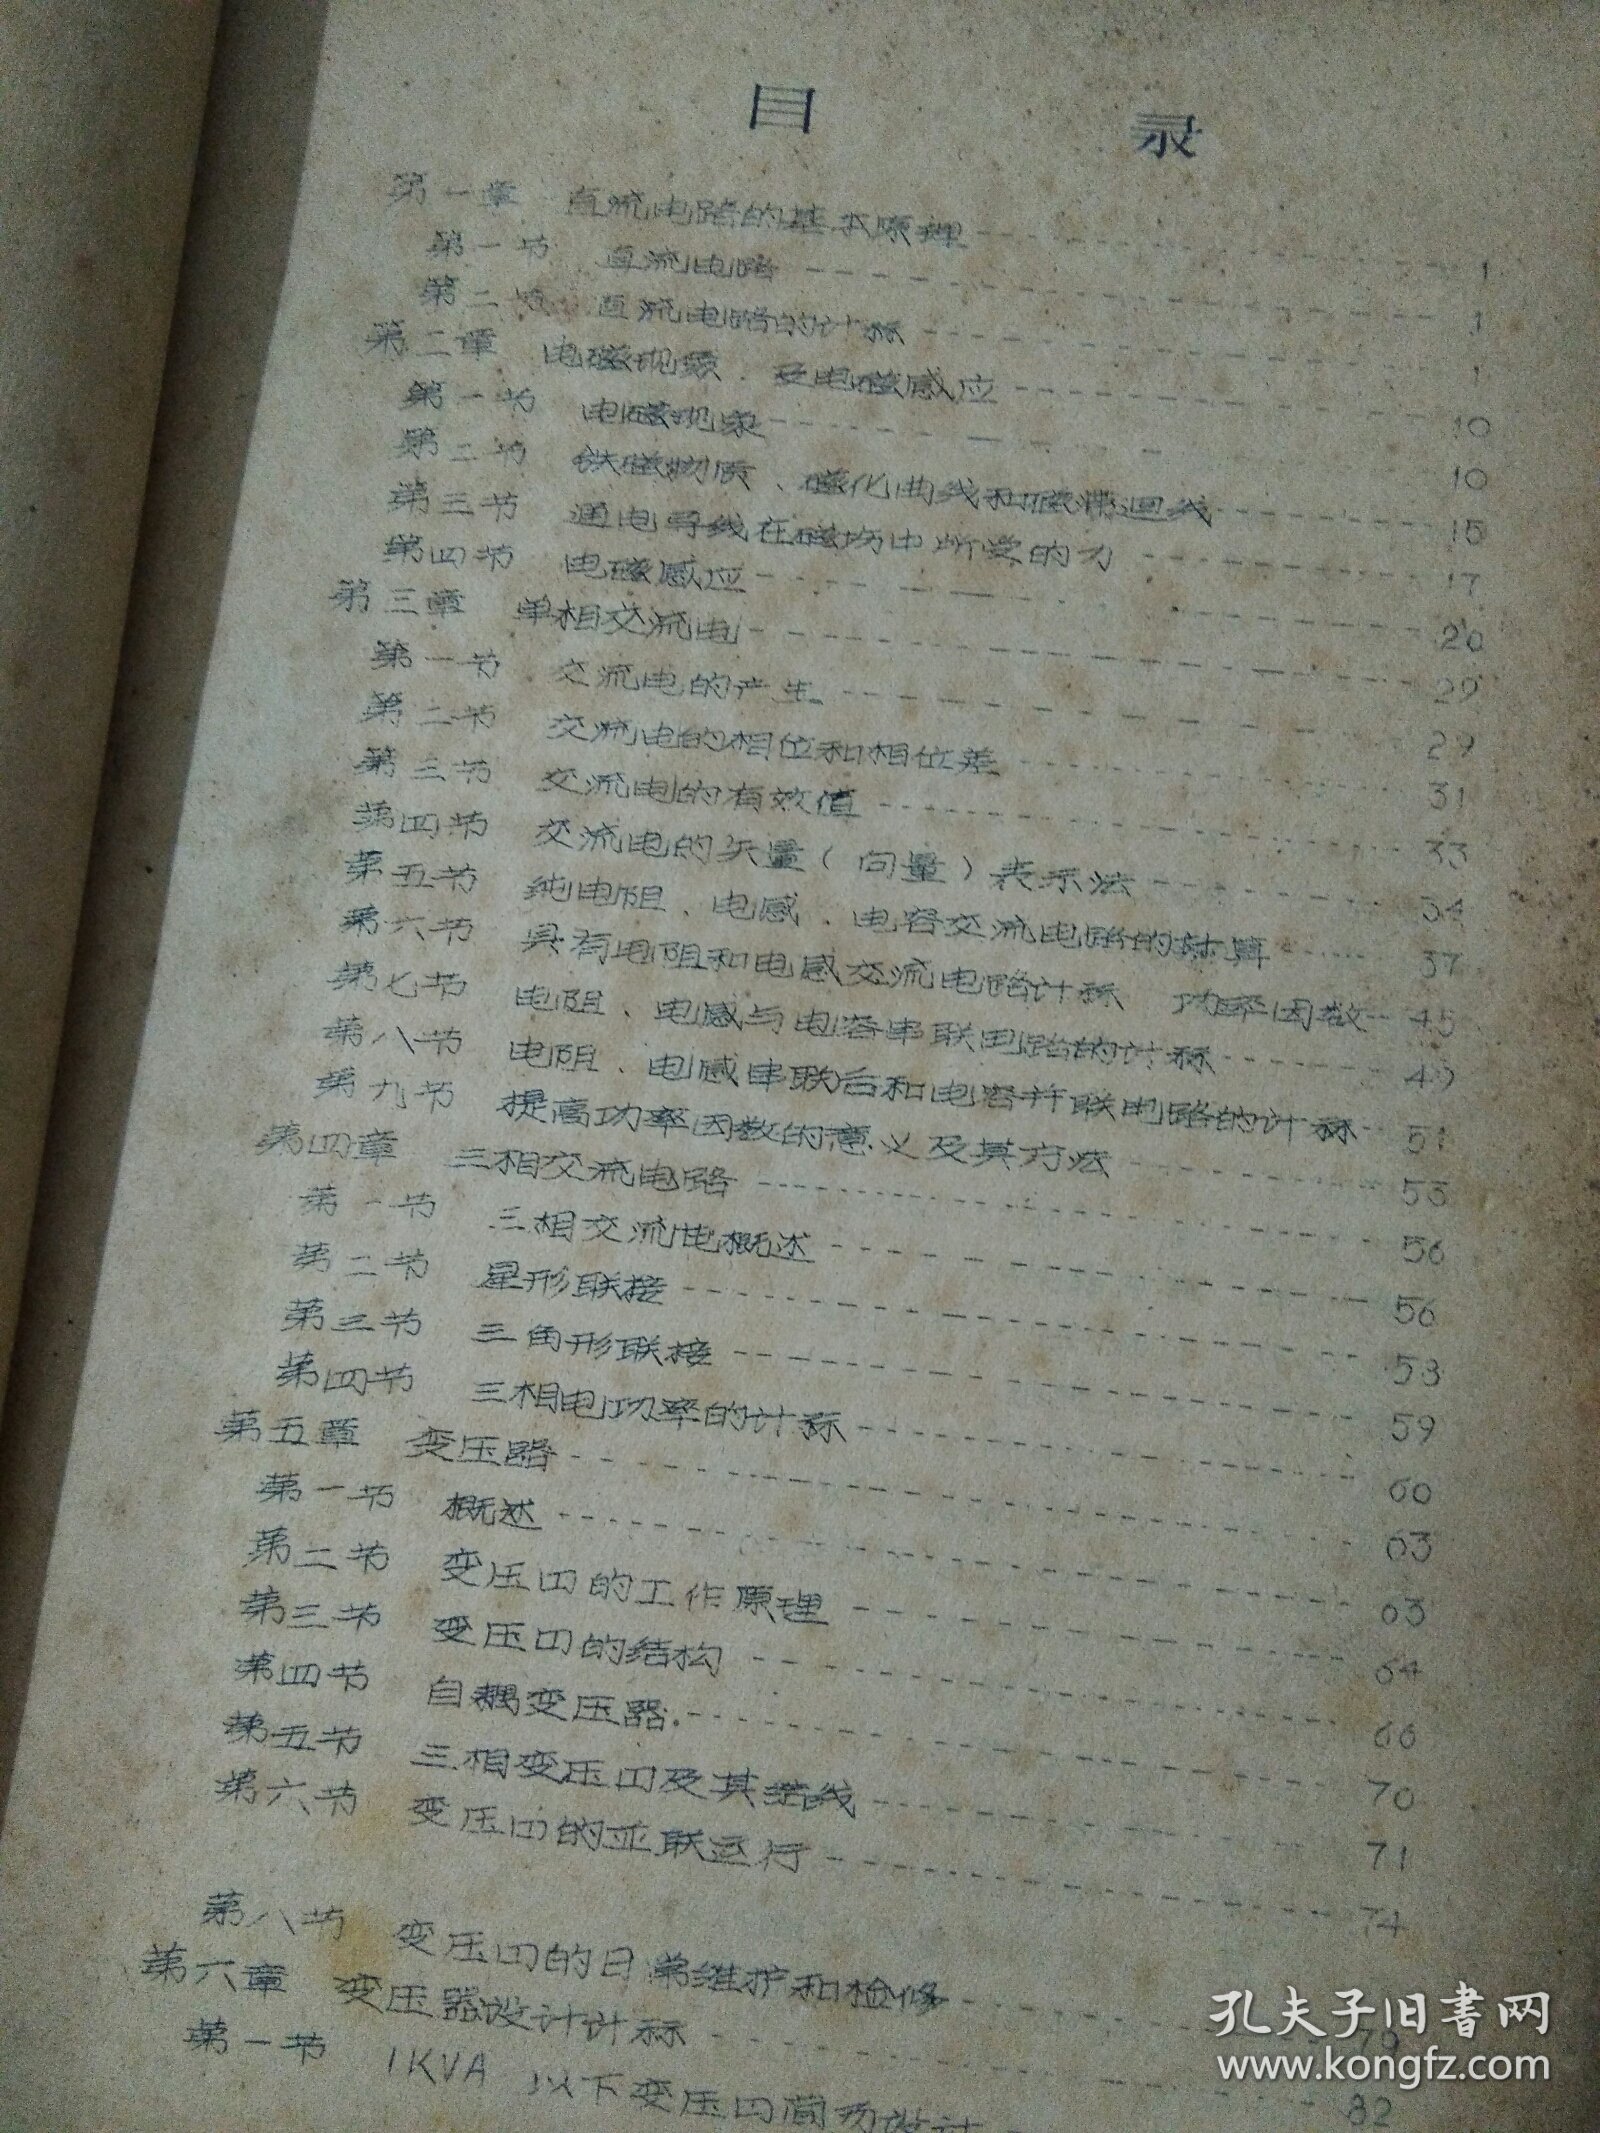 目 录
第一章 直流电路的基本原理 1
第一节 直流电路 1
第二节 直流电路的计祘 1
第二章 电磁现象、及电磁感应 10
第一节 电磁现象 10
第二节 铁磁物质、磁化曲线和磁滞迴线 15
第三节 通电导线在磁场中所受的力 17
第四节 电磁感应 20
第三章 单相交流电 29
第一节 交流电的产生 29
第二节 交流电的相位和相位差 31
第三节 交流电的有效值 33
第四节 交流电的矢量(向量)表示法 34
第五节 纯电阻、电感、电容交流电路的计算 37
第六节 具有电阻和电感交流电路计祘 功率因数 45
第七节 电阻、电感与电容串联电路的计祘 49
第八节 电阻、电感串联后和电容并联电路的计祘 51
第九节 提高功率因数的意义及其方法 53
第四章 三相交流电路 56
第一节 三相交流电概述 56
第二节 星形联接 58
第三节 三角形联接 59
第四节 三相电功率的计祘 60
第五章 变压器 63
第一节 概述 63
第二节 变压四的工作原理 64
第三节 变压四的结构 66
第四节 自耦变压器 70
第五节 三相变压四及其结线 71
第六节 变压四的並联运行 74
第八节 变压四的日常维护和检修 79
第六章 变压器设计计祘 82
第一节 1KVA 以下变压四简易设计
孔夫子旧書网
www.kongfz.com